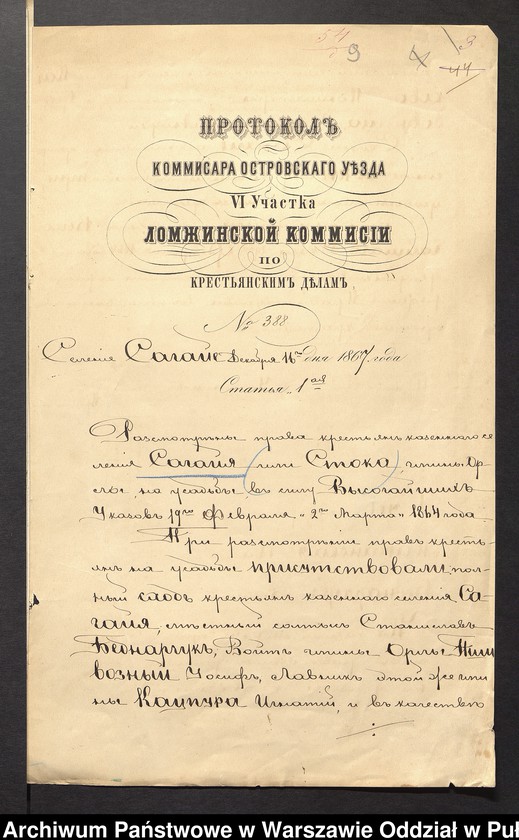 54
9 4 3
44
ПРОТОКОЛЪ
КОММИСАРА ОСТРОВСКАГО УѢЗДА
VI Участка
ЛОМЖИНСКОЙ КОММИСІИ
ПО
КРЕСТЬЯНСКИМЪ ДѢЛАМЪ
№ 388
Селеніе Сагайе Декабря 16го дня 1867 года
Статья 1ая
Разсмотрѣны права крестьянъ казеннаго се
ленія Сагайя (или Стока) гмины Ор-
ло, на усадьбы въ силу Высочайшихъ
Указовъ 19го Февраля 2го Марта 1864 года
При разсмотрѣніи правъ кресть-
янъ на усадьбы присутствовали, пол-
ный сходъ крестьянъ казеннаго селенія Са-
гайя, мѣстный солтысъ Станиславъ
Беднарчукъ, Войтъ гмины Орло
возный Іосифъ, Лавникъ этой же гми
ны Кацпура Игнатій, и въ качествѣ
Archiwum Państwowe w Warszawie Oddział w Puł